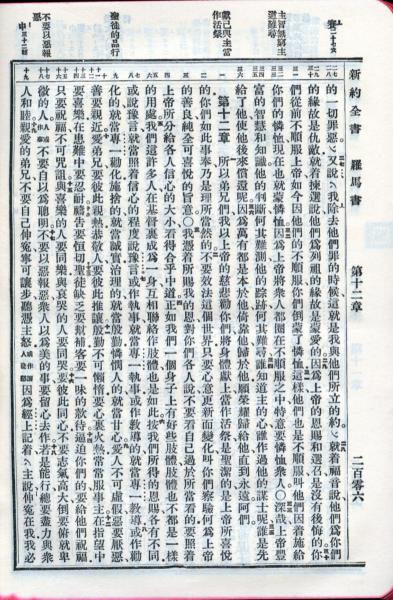 新約全書　羅馬書　第十二章　二百零六
的一切罪惡、又說、我除去他們罪的時候、這就是我與他們所立的約、就着福音說他們爲你們
的緣故是仇敵就着揀選說他們爲列祖的緣故是蒙愛的因爲上帝的恩賜和選召是沒有後悔的你
們從前不順服上帝如今因他們的不順服你們倒蒙了憐恤這樣他們也是不順服叫他們因着施給
你們的憐恤現在也就蒙憐恤因爲上帝將衆人都圈在不順服之中特意要憐恤衆人○深哉上帝豐
富的智慧和知識他的判斷何其難測他的蹤跡何其難尋誰知道主的心誰作過他的謀士呢誰是先
給了他使他後來償還呢因爲萬有都是本於他倚靠他歸於他願榮耀歸給他直到永遠阿們
第十二章　所以弟兄們我以上帝的慈悲勸你們將身體獻上當作活祭是聖潔的是上帝所喜悅
的你們如此事奉乃是理所當然的不要效法這個世界只要心意更新而變化叫你們察驗何爲上帝
的善良純全可喜悅的旨意○我憑着所賜我的恩對你們各人說不要看自己過於所當看的要照着
上帝所分給各人信心的大小看得合乎中道正如我們一個身子上有好些肢體肢體也不都是一樣
的用處我們這許多人在基督裏成爲一身互相聯絡作肢體也是如此按我們所得的恩賜各有不同
或說豫言就當照着信心的程度說豫言或作執事就當專一執事或作教導的就當專一教導或作勸
化的就當專一勸化施捨的就當誠實治理的就當殷勤憐憫人的就當甘心愛人不可虛假惡要厭惡
善要親近愛弟兄要彼此親熱恭敬人要彼此推讓殷勤不可懶惰要心裏火熱常常服事主在指望中
要喜樂在患難中要忍耐禱告要恒切聖徒缺乏要幫補客要一味的款待逼迫你們的要給他們祝福
只要祝福不可咒詛與喜樂的人要同樂與哀哭的人要同哭要彼此同心不要志氣高大倒要俯就卑
微的人不要自以爲聰明不要以惡報惡衆人以爲美的事要留心去作若是能行總要盡力與衆
人和睦親愛的弟兄不要自己伸寃寧可讓步聽憑主怒因爲經上記着主說伸寃在我我必
獻己與主當
作活祭
聖徒的品行
不要以惡報
惡